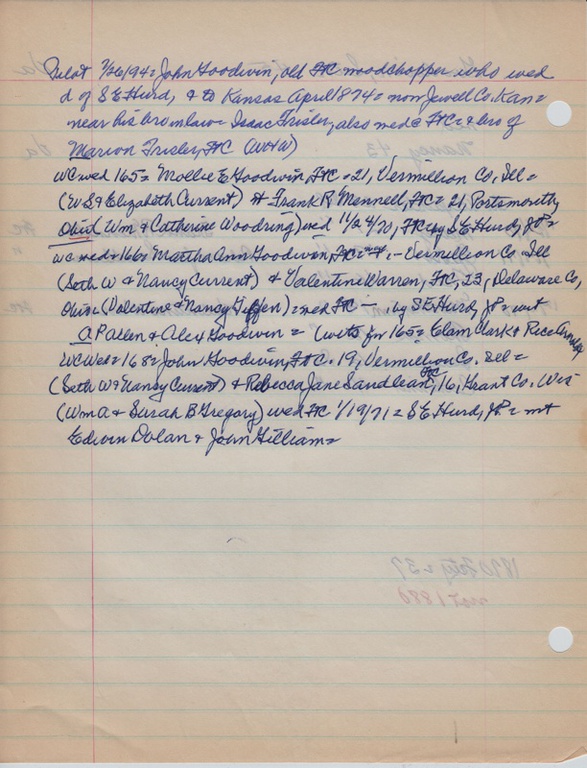 7/26/94 = John Goodwin, old FC woodchopper who wed
d of S E Hurd, & to Kansas April 1874 = now Jewell Co, Kan =
near his broinlaw = Isaac Frisler, also wed @ FC = & bro of
Marion Frisler, FC (W & W)
WC wed 165 = Mollie E Goodwin, FC = 21, Vermillion Co, Ill =
(W S & Elizabeth Current) & Frank R Mennell, FC = 21, Portsmouth,
Ohio (Wm & Catherine Woodring) wed 11/24/70, FC by S E Hurd, JP =
WC wed = 166 = Martha Ann Goodwin, FC = - Vermillion Co Ill
(Seth W & Nancy Current) & Valentine Warren, FC, 23, Delaware Co,
Ohio = (Valentine & Nancy Giffen) = wed FC — by S E Hurd, JP = wit
A P Allen & Alex Goodwin = (wits for 165 = Clam Clark & Rice
WC Wed = 168 = John Goodwin, FC = 19, Vermillion Co. Ill =
(Seth W & Nancy Current) & Rebecca Jane Sandlean, FC, 16, Grant Co. Wis
(Wm A & Sarah B Gregory) wed FC 1/19/71 = S E Hurd, JP = wit
Edwin Dolan & John Gilliam =